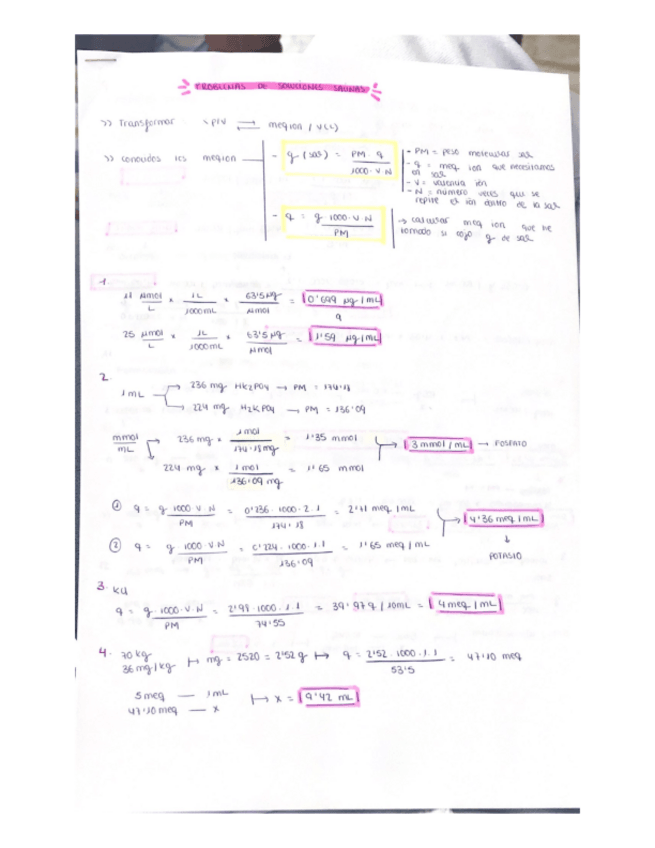 PROBLEMAS DE SOLUCIONES SALINAS
>> Transformar % P/V ⇄ meq ion / V(L)
>> conocidos los meq ion — - g (sal) = PM · q / 1000 · V · N
- PM = peso molecular sal
- q = meq ion que necesitamos en sal
- V = valencia ión
- N = número veces que se repite el ión dentro de la sal
- q = g · 1000 · V · N / PM → calcular meq ion que he tomado si cojo g de sal
1.
11 µmol / L × 1L / 1000 mL × 63'5 µg / µmol = 0'699 µg / mL
25 µmol / L × 1L / 1000 mL × 63'5 µg / µmol = 1'59 µg / mL
2.
1 mL → 236 mg HK2PO4 → PM = 174'18
→ 224 mg H2KPO4 → PM = 136'09
mmol / mL → 236 mg × 1 mol / 174'18 mg = 1'35 mmol → 3 mmol / mL → FOSFATO
→ 224 mg × 1 mol / 136'09 mg = 1'65 mmol
① q = g · 1000 · V · N / PM = 0'236 · 1000 · 2 · 1 / 174'18 = 2'71 meq / mL → 4'36 meq / mL
② q = g · 1000 · V · N / PM = 0'224 · 1000 · 1 · 1 / 136'09 = 1'65 meq / mL
↓
POTASIO
3. KCl
q = g · 1000 · V · N / PM = 2'98 · 1000 · 1 · 1 / 74'55 = 39'97 q / 10 mL = 4 meq / mL
4. 70 kg
36 mg / kg ↦ mg = 2520 = 2'52 g ↦ q = 2'52 · 1000 · 1 · 1 / 53'5 = 47'10 meq
5 meq — 1 mL
47'10 meq — x ↦ x = 9'42 mL